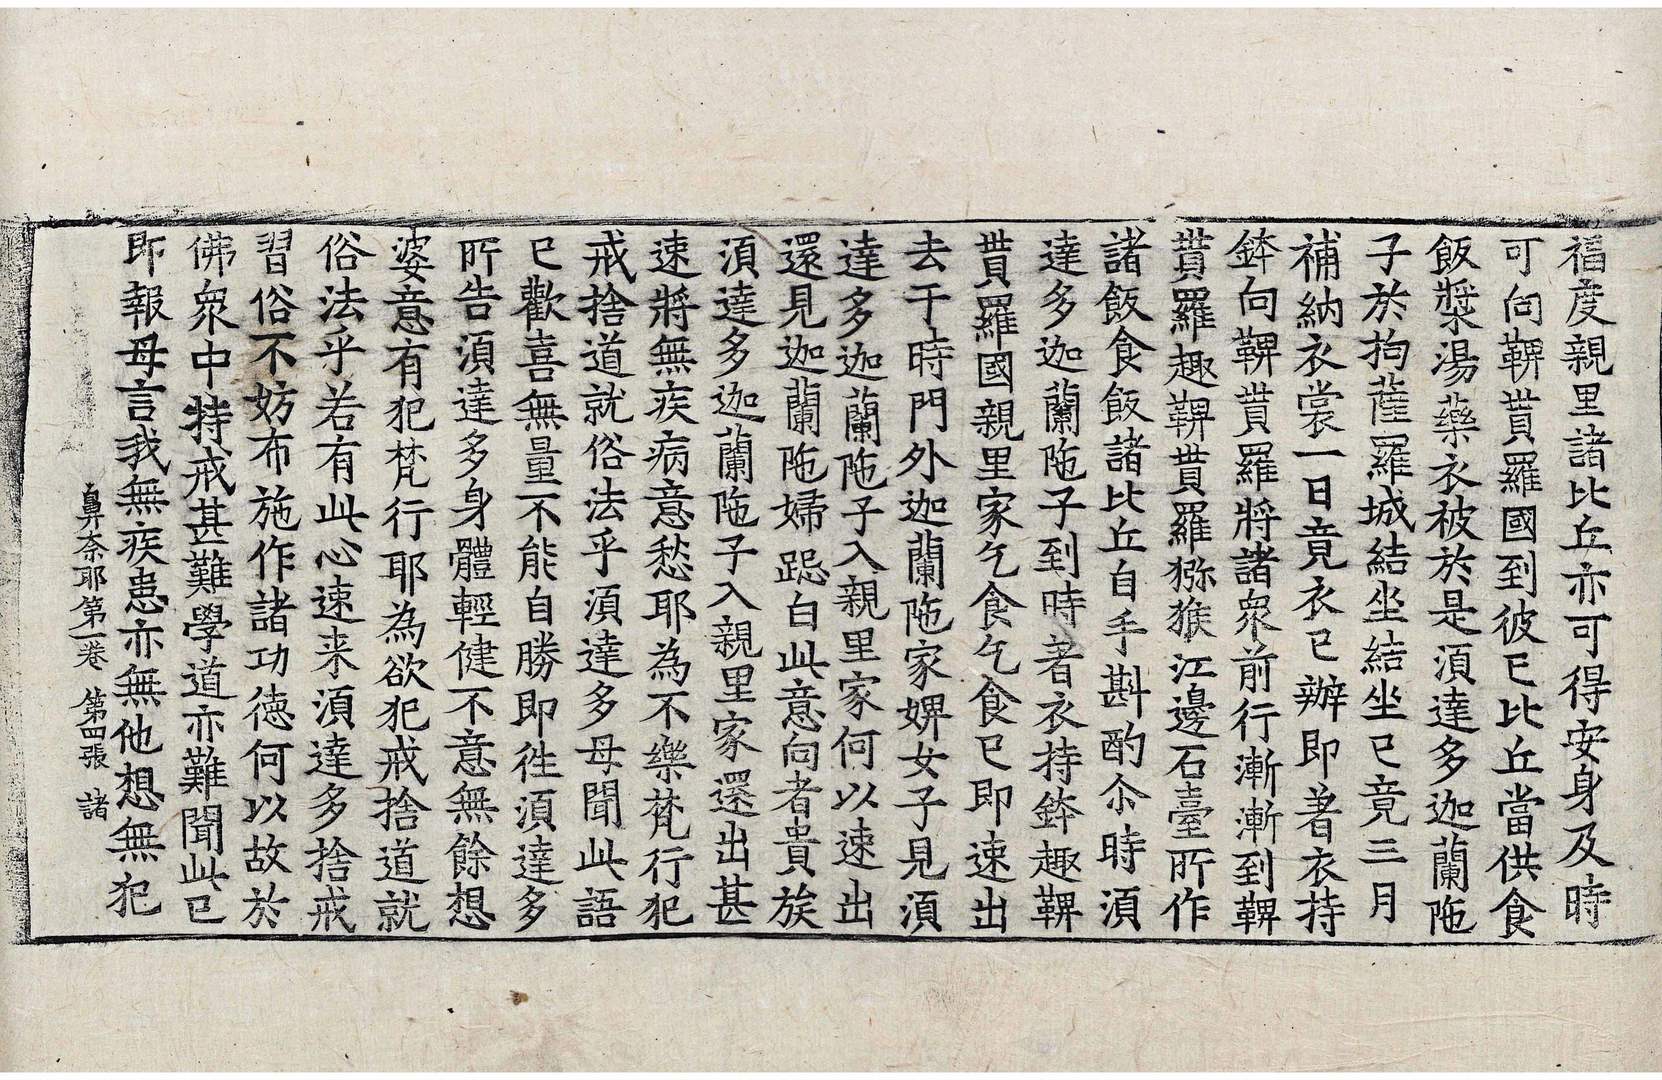 福度親里諸比丘亦可得安身及時
可向鞞貰羅國到彼已比丘當供食
飯漿湯藥衣被於是須達多迦蘭陁
子於拘薩羅城結坐結坐已竟三月
補納衣裳一日竟衣已辦即著衣持
鉢向鞞貰羅將諸衆前行漸漸到鞞
貰羅趣鞞貰羅獼猴江邊石臺所作
諸飯食飯諸比丘自手斟酌尒時須
達多迦蘭陁子到時著衣持鉢趣鞞
貰羅國親里家乞食乞食已即速出
去于時門外迦蘭陁家婢女子見須
達多迦蘭陁子入親里家何以速出
還見迦蘭陁婦跽白此意向者貴族
須達多迦蘭陁子入親里家還出甚
速將無疾病意愁耶為不樂梵行犯
戒捨道就俗法乎須達多母聞此語
已歡喜無量不能自勝即徃須達多
所告須達多身體輕健不意無餘想
婆意有犯梵行耶為欲犯戒捨道就
俗法乎若有此心速来須達多捨戒
習俗不妨布施作諸功德何以故於
佛衆中特戒甚難學道亦難聞此已
即報母言我無疾患亦無他想無犯
鼻奈耶第一卷 第四張 諸